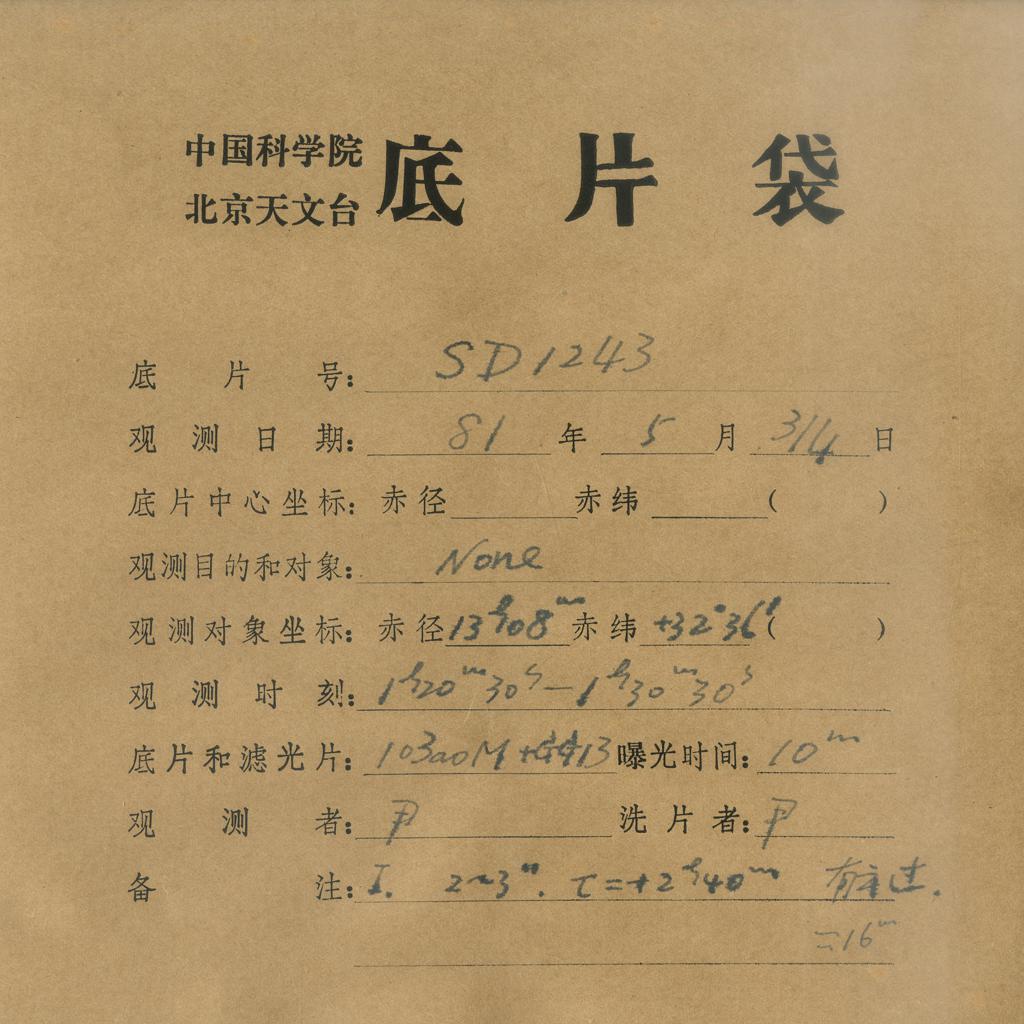 中国科学院
北京天文台 底片袋
底片号: SD1243
观测日期: 81年 5月 3/4日
底片中心坐标: 赤径 赤纬 ( )
观测目的和对象: None
观测对象坐标: 赤径 13ʰ08ᵐ 赤纬 +32°36′ ( )
观测时刻: 1ʰ20ᵐ30ˢ—1ʰ30ᵐ30ˢ
底片和滤光片: 103aO 13 曝光时间: 10ᵐ
观测者: 尹 洗片者: 尹
备注: I. 2~3″. τ=+2ʰ40ᵐ 有
=16ᵐ